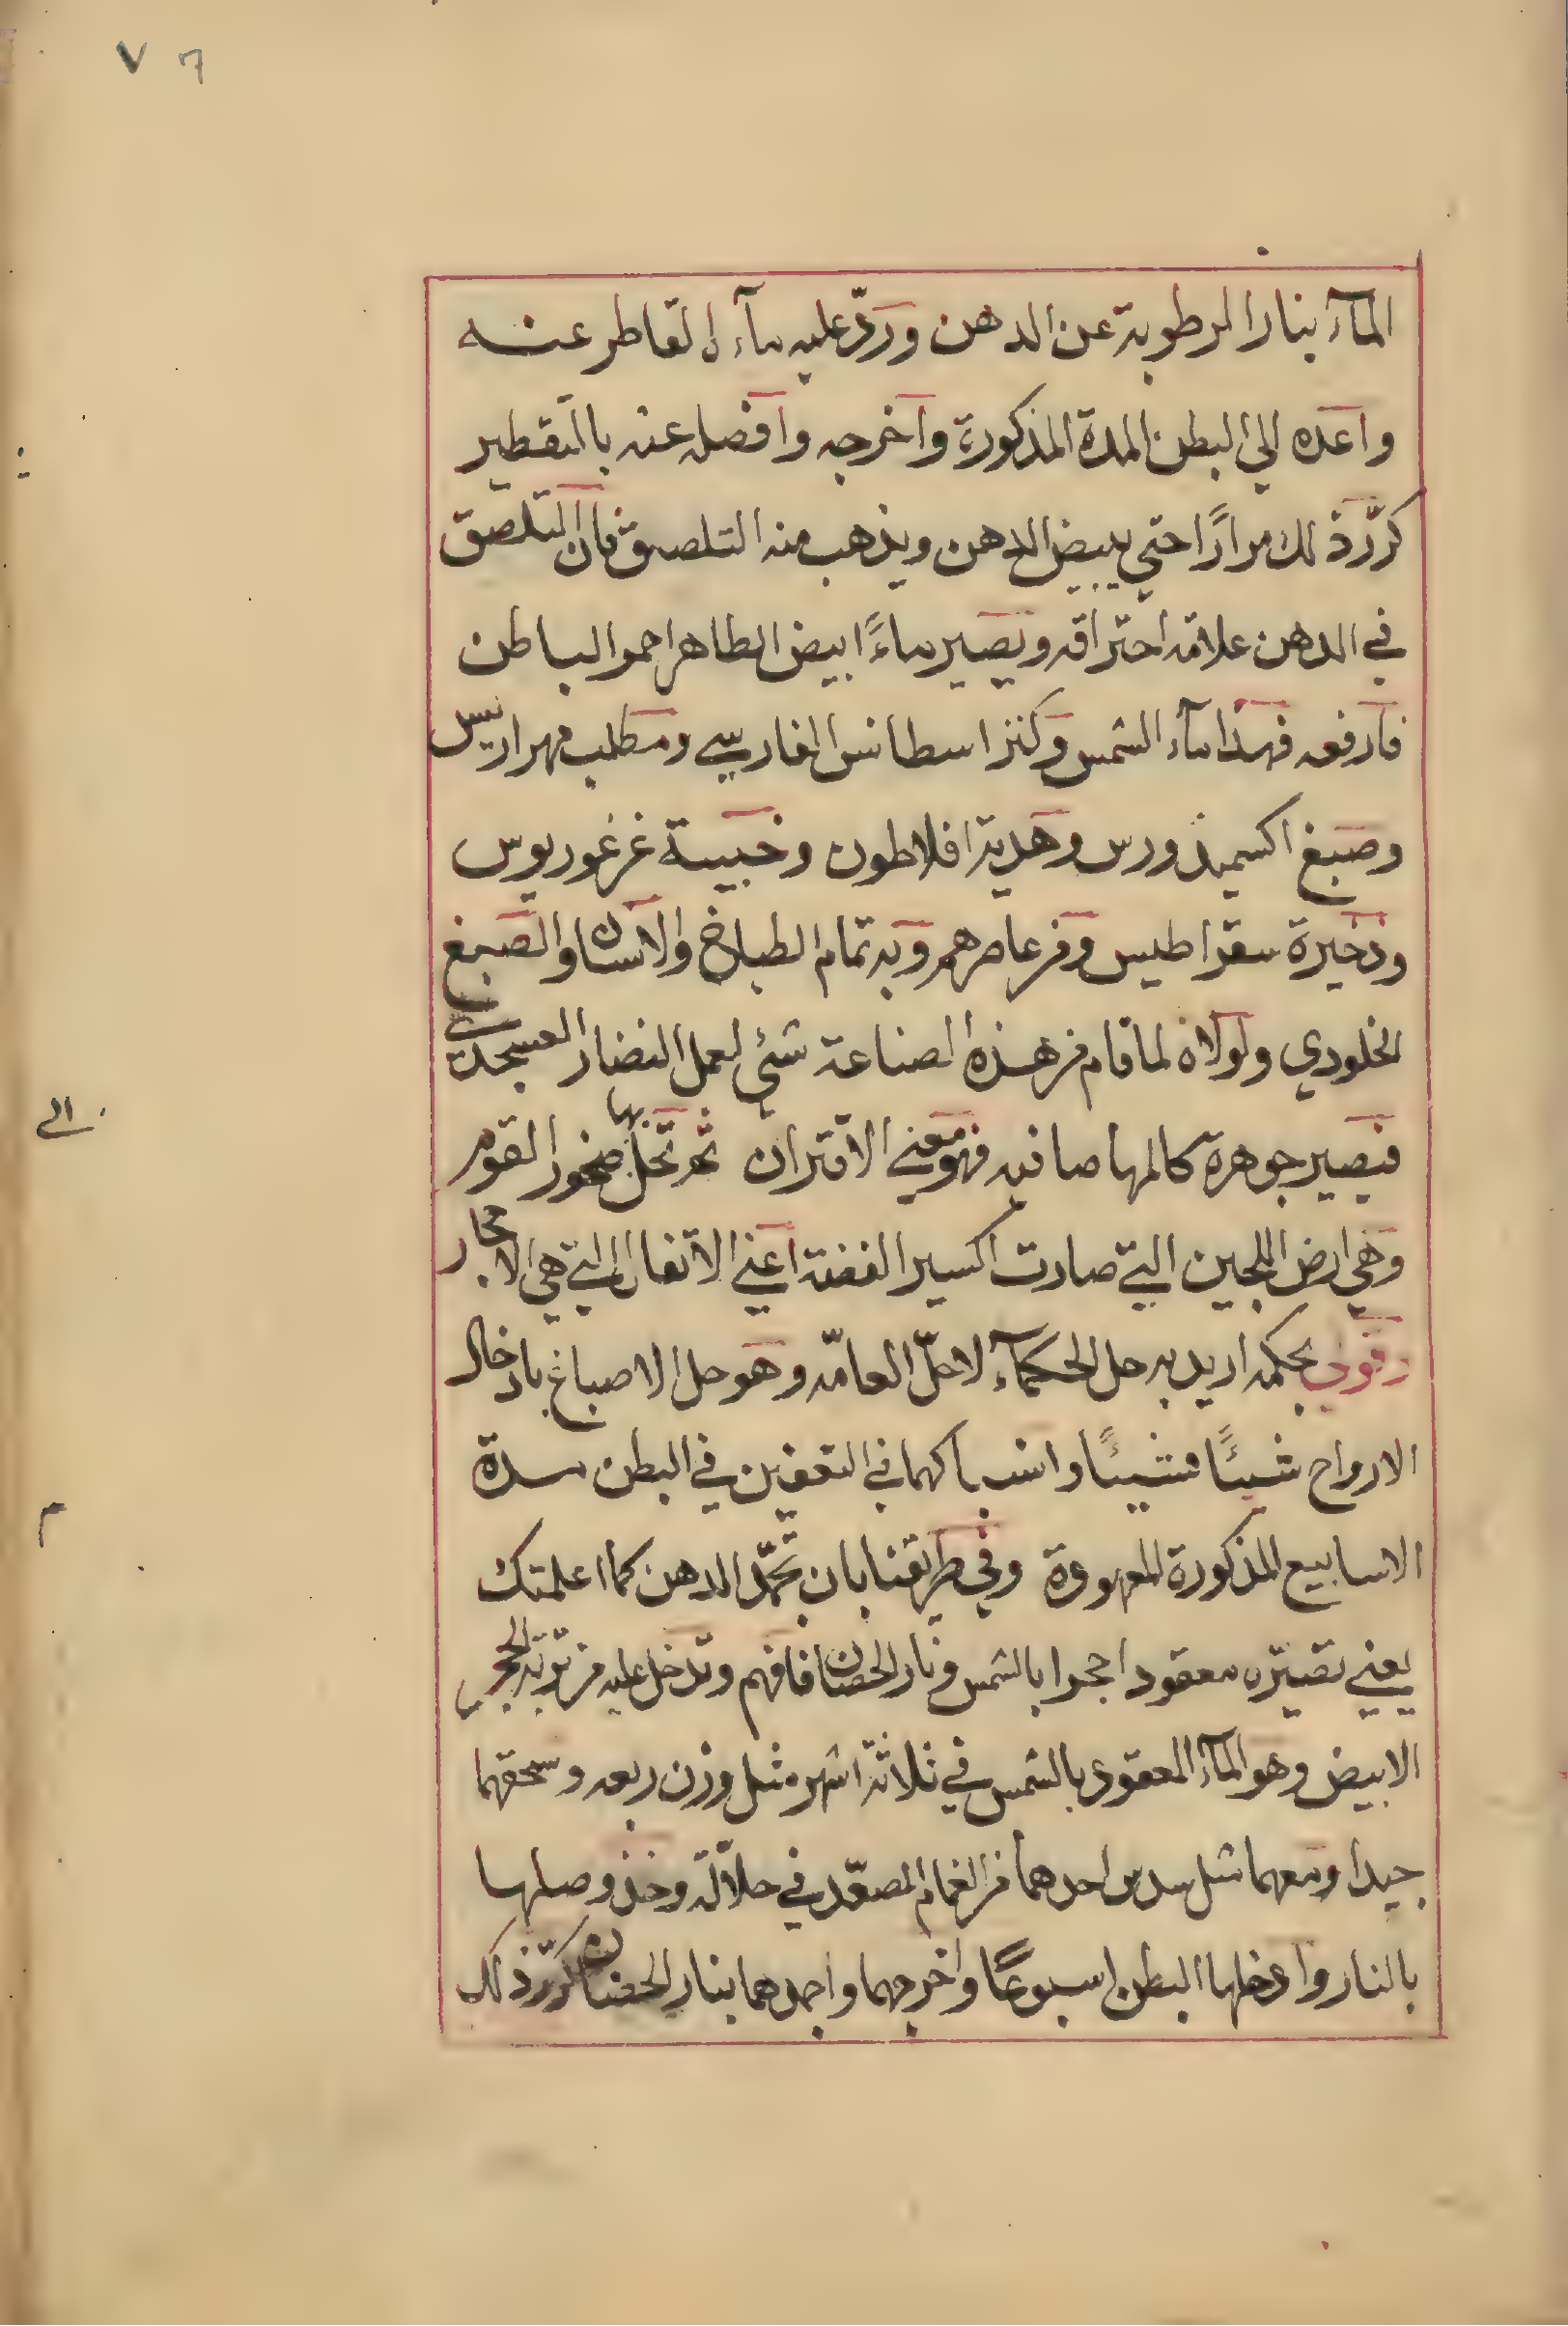 ٧٦
المآء بنار الرطوبة عن الدهن وردّ عليه مآءه القاطر عنه
واعده الي البطن المدة المذكورة واخرجه وافصله عنه بالتقطير
كرّر ذلك مرارًا حتي يبيض الدهن ويذهب منه التلصق فان التلصق
في الدهن علامة احتراقه ويصير ماءً ابيض الظاهر احمر الباطن
فارفعه فهذا مآء الشمس وكنز اسطانس الفارسي ومطلب مهراريس
وصبغ اكسميذورس وهدية افلاطون وخبيية غرغوريوس
وذخيرة سقراطيس وفرعاصرهم وبه تمام الطباخ والاسان والصبغ
الخلودي ولولاه لما قام من هذه الصناعة شئي لعمل النضار العسجدي
فيصير جوهرة كالمها صافيه فهو معني الاقتران ثم تحل بها صخور القوم
وهي ارض اللجين التي صارت اكسير الفضة اعني الاثفال التي هي الاحجار
وقولي بحكمه اريد به حل الحكمآء لا حلّ العامّه وهو حل الاصباغ بادخال
الارواح شيئًا فشيئًا واشباكهما في التعفين في البطن مدة
الاسابيع المذكورة المعهودة وفي طريقنا بان تجمّد الدهن كما اعلمتك
يعني تصيّره معقودا حجرا بالشمس ونار الحضان فافهم وتدخل عليه من تربة الحجر
الابيض وهو المآء المعقود بالشمس في ثلاثة اشهر مثل وزن ربعه وسحقهما
جيدا ومعهما مثل سدس احدهما من الغمام المصعّد في حلاّلة وخذ وصلها
بالنار وادخلها البطن اسبوعًا واخرجهما واجمدهما بنار الحضان كرّر ذلك
الي
م